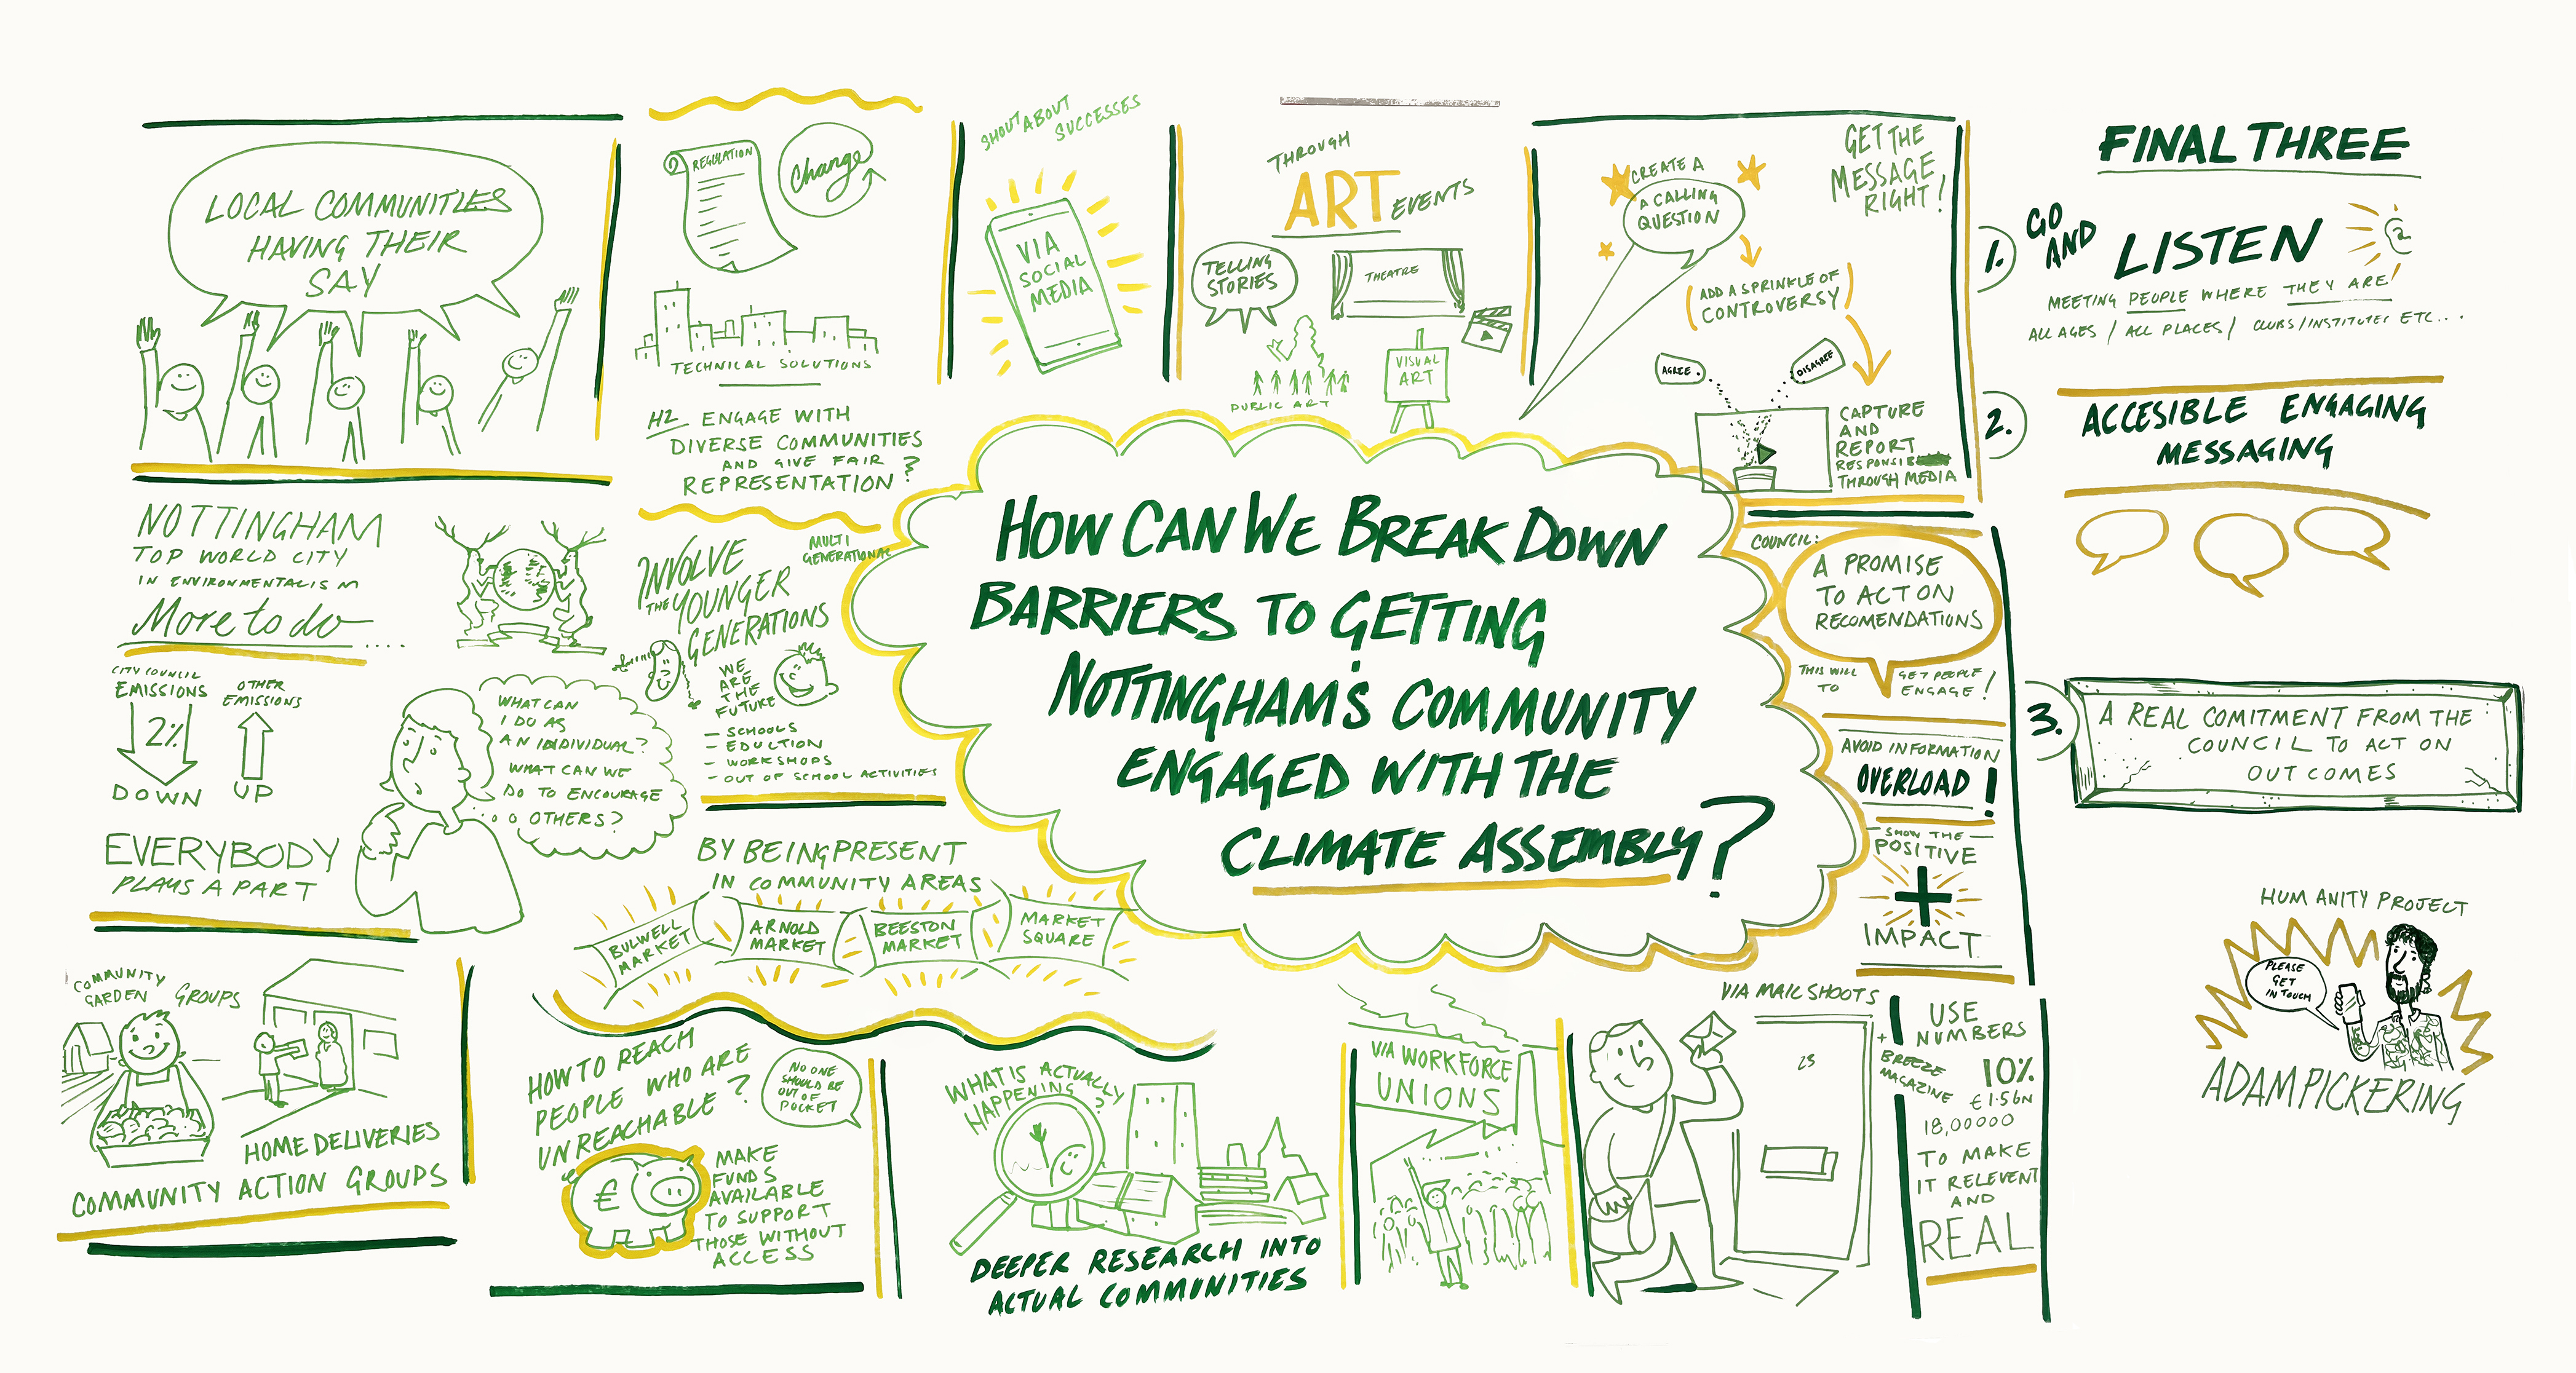 LOCAL COMMUNITIES
HAVING THEIR
SAY
REGULATION
Change
TECHNICAL SOLUTIONS
H2 ENGAGE WITH
DIVERSE COMMUNITIES
AND GIVE FAIR
REPRESENTATION?
SHOUT ABOUT
SUCCESSES
VIA
SOCIAL
MEDIA
THROUGH
ART EVENTS
TELLING
STORIES
THEATRE
PUBLIC ART
VISUAL
ART
GET THE
MESSAGE
RIGHT!
CREATE A
A CALLING
QUESTION
ADD A SPRINKLE OF
CONTROVERSY
AGREE
DISAGREE
CAPTURE
AND
REPORT
THROUGH MEDIA
NOTTINGHAM
TOP WORLD CITY
IN ENVIRONMENTALISM
More to do....
CITY COUNCIL
EMISSIONS
2%
DOWN
OTHER
EMISSIONS
UP
EVERYBODY
PLAYS A PART
WHAT CAN
I DO AS
AN INDIVIDUAL?
WHAT CAN WE
DO TO ENCOURAGE
OTHERS?
INVOLVE
THE YOUNGER
GENERATIONS
MULTI
GENERATIONAL
WE
ARE
THE
FUTURE
- SCHOOLS
- EDUCTION
- WORKSHOPS
- OUT OF SCHOOL ACTIVITIES
HOW CAN WE BREAK DOWN
BARRIERS TO GETTING
NOTTINGHAM'S COMMUNITY
ENGAGED WITH THE
CLIMATE ASSEMBLY?
COUNCIL:
A PROMISE
TO ACT ON
RECOMENDATIONS
THIS WILL
TO
GET PEOPLE
ENGAGE!
AVOID INFORMATION
OVERLOAD!
SHOW THE
POSITIVE
+
IMPACT
BY BEING PRESENT
IN COMMUNITY AREAS
BULWELL
MARKET
ARNOLD
MARKET
BEESTON
MARKET
MARKET
SQUARE
COMMUNITY
GARDEN GROUPS
HOME DELIVERIES
COMMUNITY ACTION GROUPS
HOW TO REACH
PEOPLE WHO ARE
UNREACHABLE?
NO ONE
SHOULD BE
OUT OF
POCKET
€
MAKE
FUNDS
AVAILABLE
TO SUPPORT
THOSE WITHOUT
ACCESS
WHAT IS ACTUALLY
HAPPENING?
DEEPER RESEARCH INTO
ACTUAL COMMUNITIES
VIA WORKFORCE
UNIONS
VIA MAIL SHOOTS
23
+
BREEZE
MAGAZINE
USE
NUMBERS
10%
€1.56N
18,00000
TO MAKE
IT RELEVENT
AND
REAL
FINAL THREE
1. GO
AND
LISTEN
MEETING PEOPLE WHERE THEY ARE!
ALL AGES / ALL PLACES / CLUBS/INSTITUTES ETC...
2. ACCESIBLE ENGAGING
MESSAGING
3. A REAL COMITMENT FROM THE
COUNCIL TO ACT ON
OUTCOMES
HUMANITY PROJECT
PLEASE
GET
IN TOUCH
ADAM PICKERING